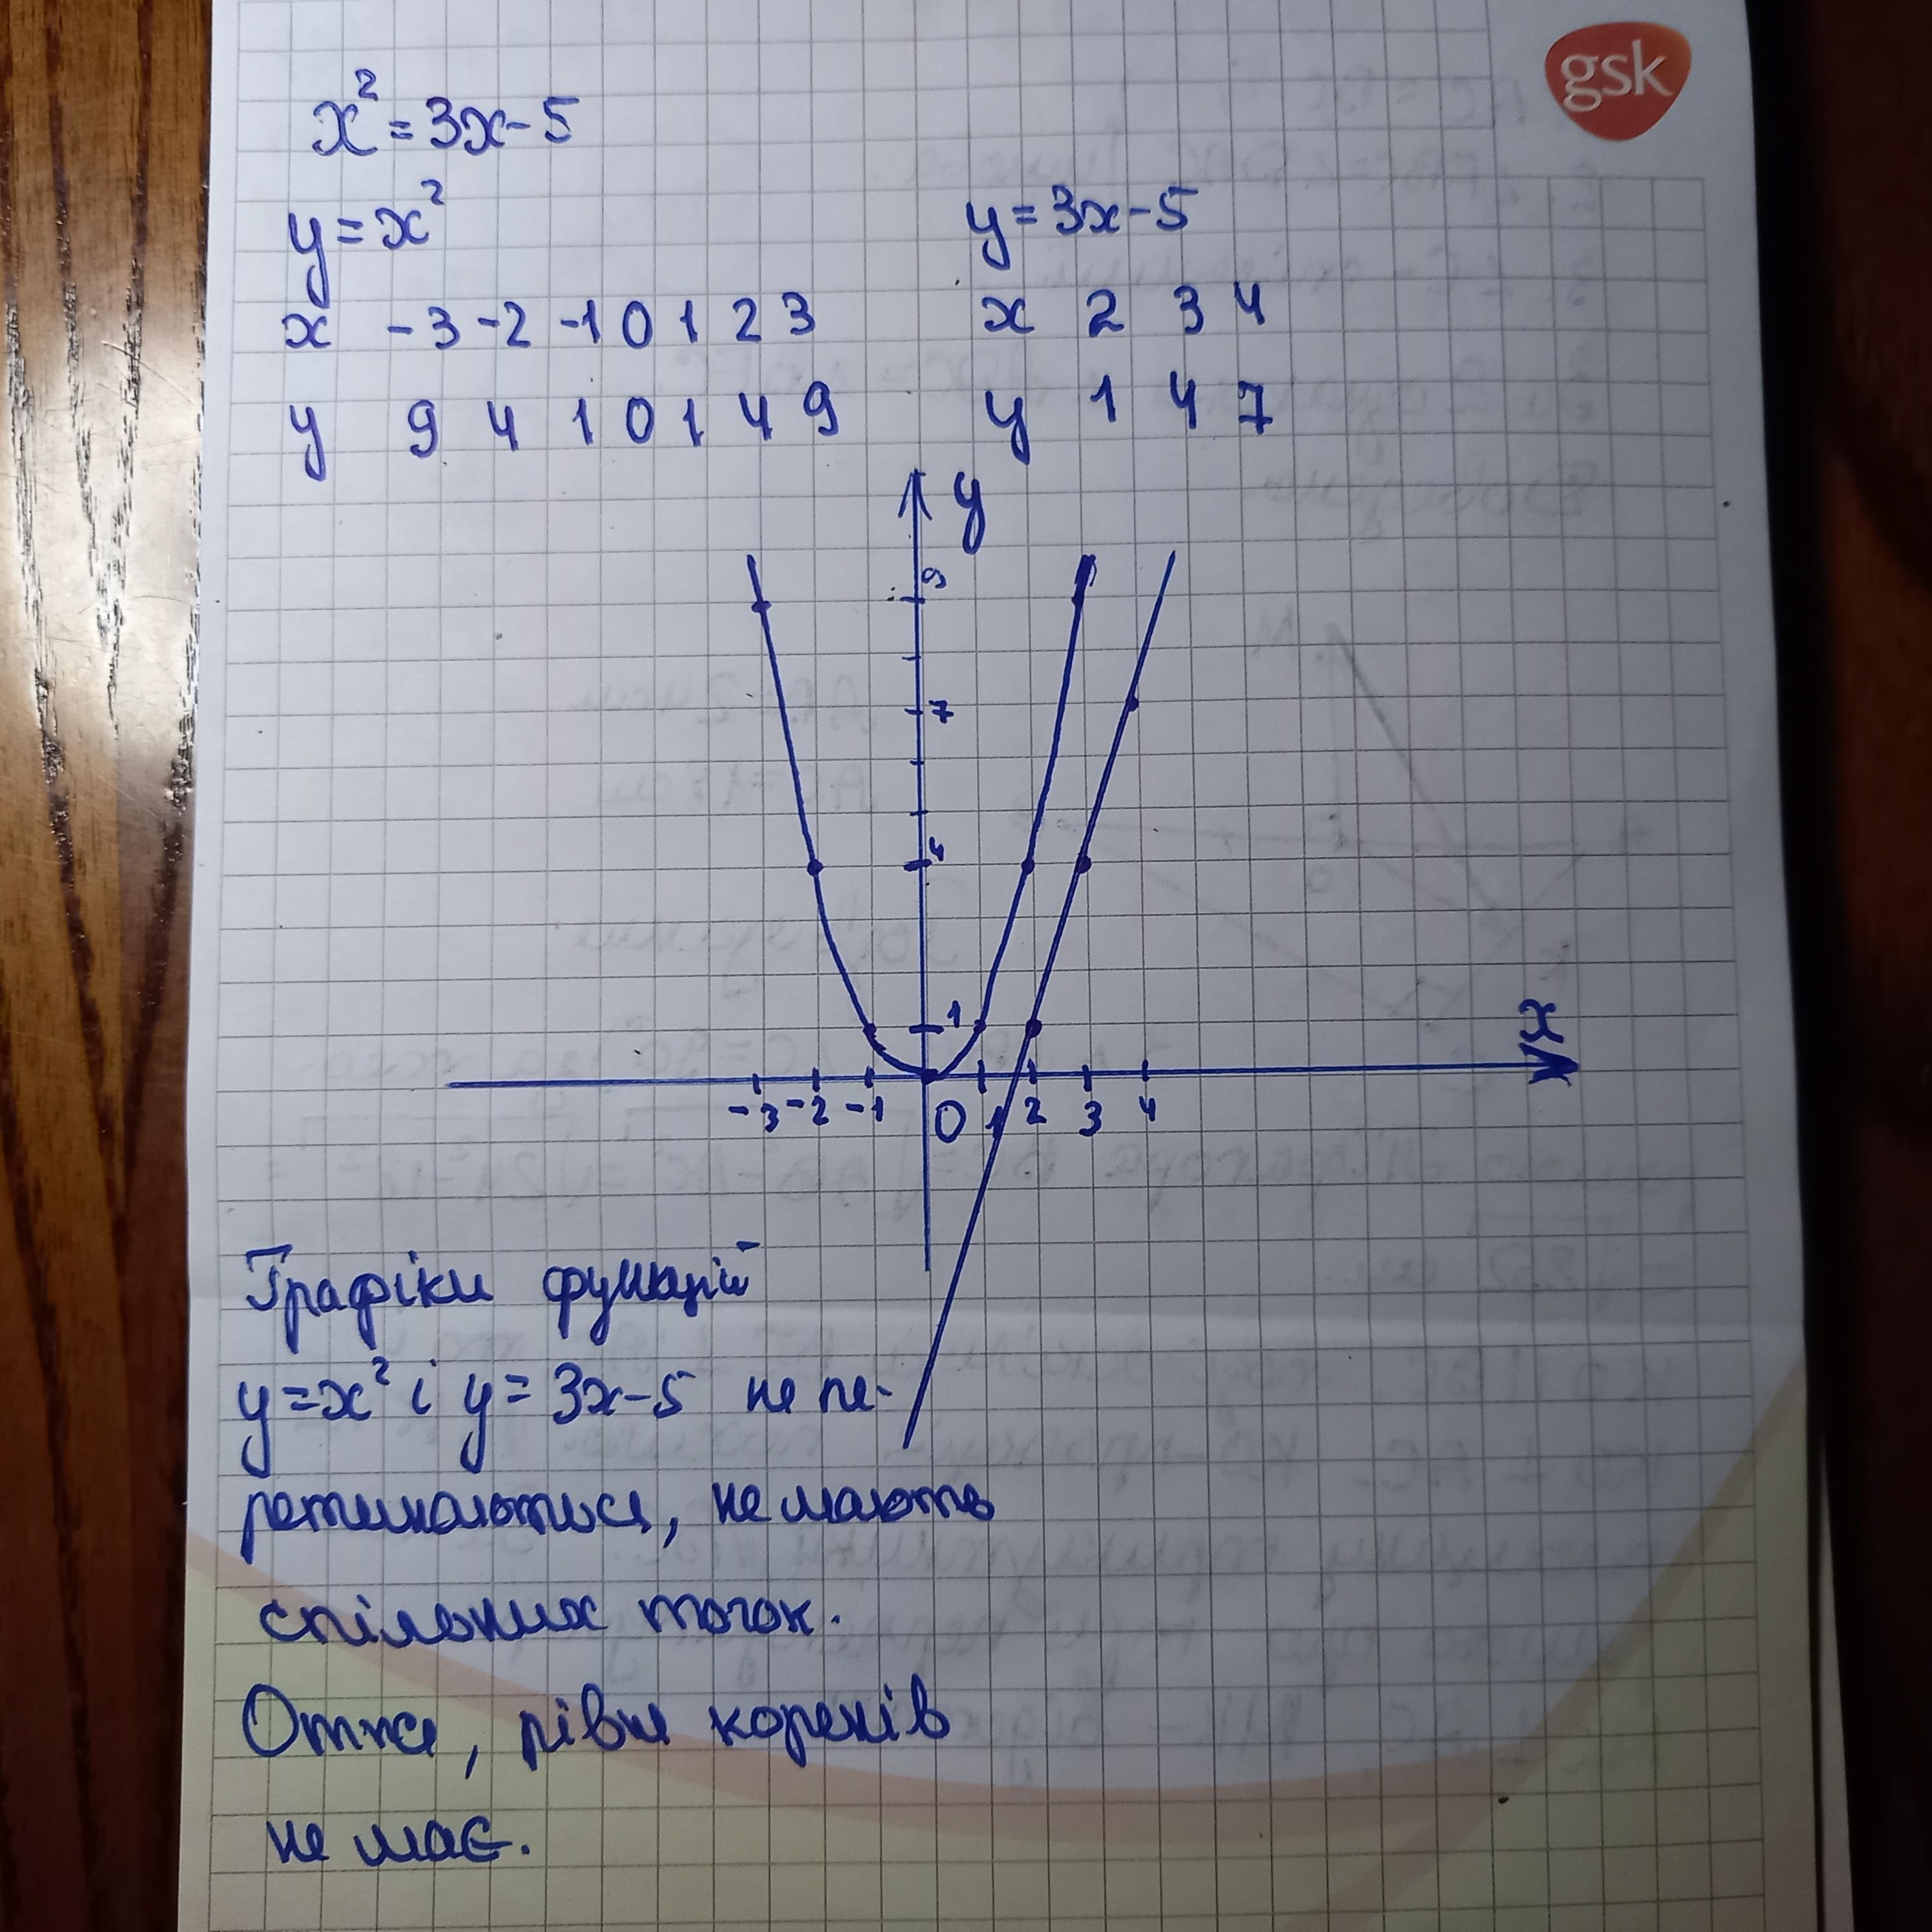 gsk
x² = 3x - 5
y = x²
y = 3x - 5
x -3 -2 -1 0 1 2 3
x 2 3 4
y 9 4 1 0 1 4 9
y 1 4 7
y
9
7
4
1
x
-3 -2 -1 0 1 2 3 4
Графіки функцій
y = x² і y = 3x - 5 не пе-
ретинаються, не мають
спільних точок.
Отже, рівн коренів
не має.